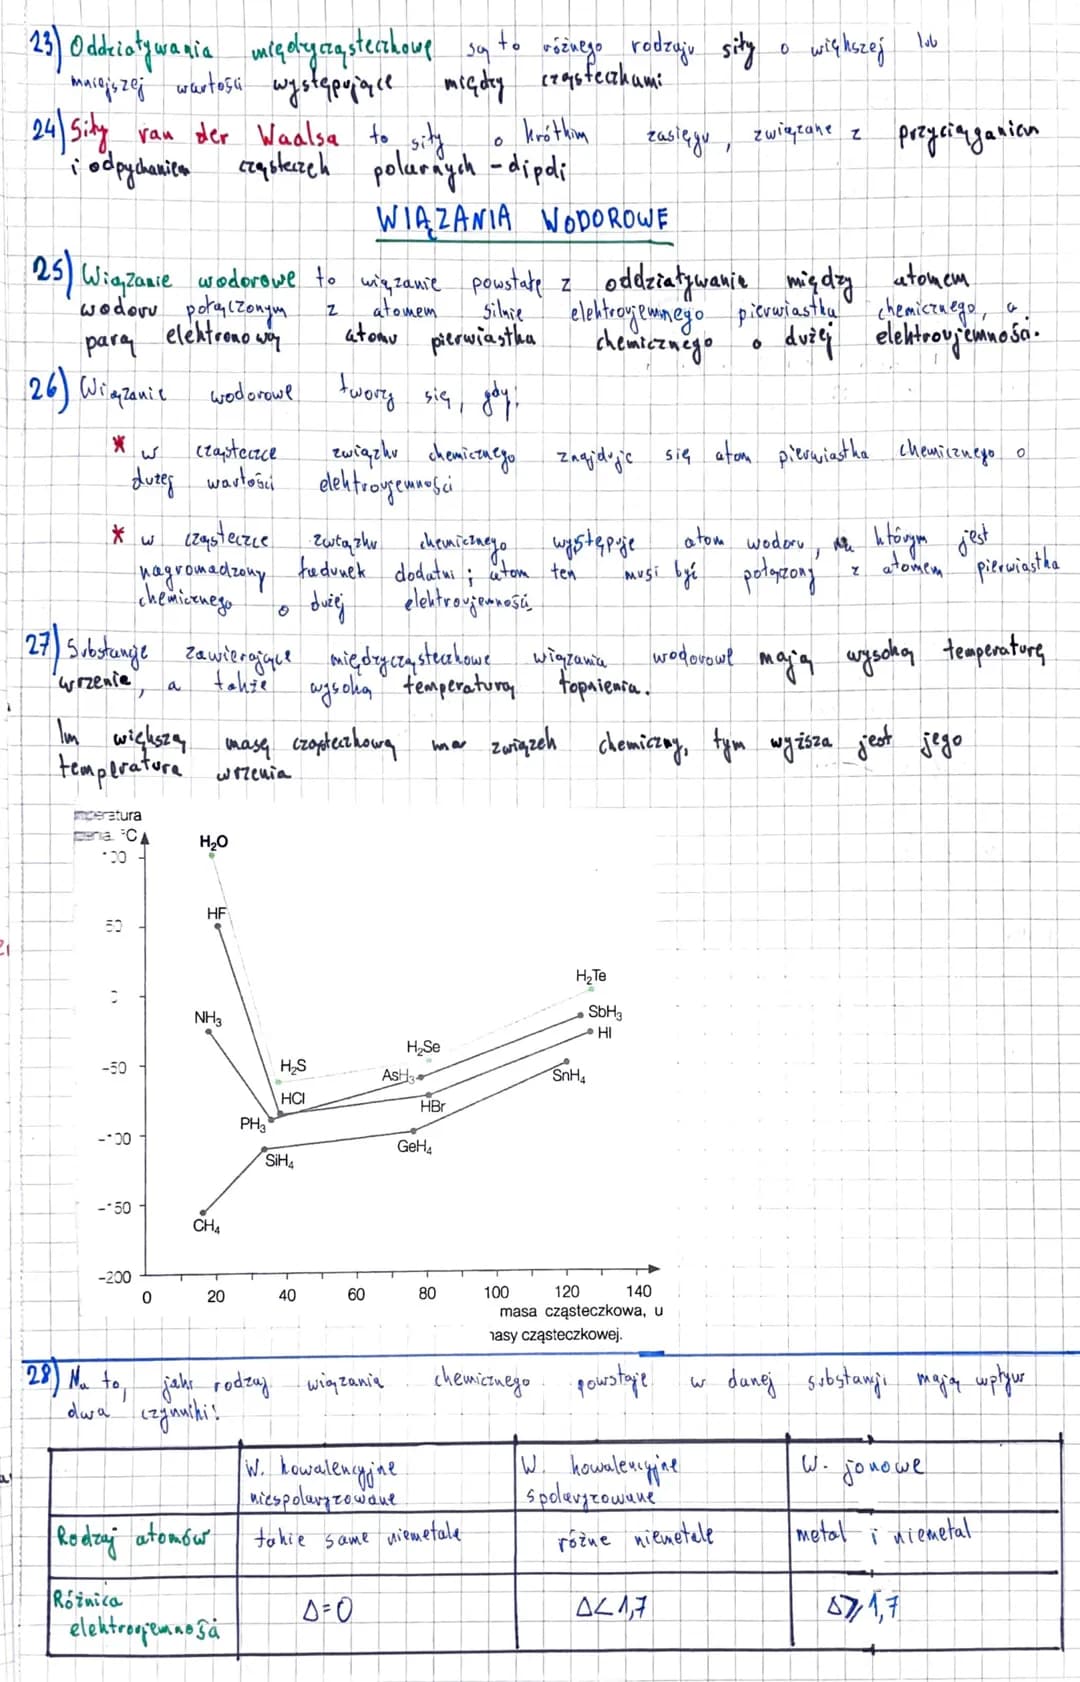 23) Oddziaływania międzycząsteczkowe są to różnego rodzaju siły o większej lub
mniejszej wartości występujące między cząsteczkami
24) Siły van der Waalsa to siły o krótkim zasięgu, związane z przyciąganiem
i odpychaniem cząsteczek polarnych - dipoli
WIĄZANIA WODOROWE
25) Wiązanie wodorowe to wiązanie powstałe z oddziaływanie między atomem
wodoru połączonym z atomem silnie elektroujemnego pierwiastka chemicznego, a
parą elektronową atomu pierwiastka chemicznego o dużej elektroujemności.
26) Wiązanie wodorowe tworzy się, gdy:
* w cząsteczce związku chemicznego znajduje się atom pierwiastka chemicznego o
dużej wartości elektroujemności
* w cząsteczce związku chemicznego występuje atom wodoru, na którym jest
nagromadzony ładunek dodatni; atom ten musi być połączony z atomem pierwiastka
chemicznego o dużej elektroujemności
27) Substancje zawierające międzycząsteczkowe wiązania wodorowe mają wysoką temperaturę
wrzenia, a także wysoką temperaturą topnienia.
Im większą masę cząsteczkową ma związek chemiczny, tym wyższa jest jego
temperatura wrzenia
mperatura
°C
H₂O
HF
50
H₂Te
NH₃
SbH₃
HI
H₂Se
-50
H₂S
AsH₃
SnH₄
HCl
HBr
PH₃
-100
GeH₄
SiH₄
-150
CH₄
-200
0 20 40 60 80 100 120 140
masa cząsteczkowa, u
masy cząsteczkowej.
28) Na to, jaki rodzaj wiązania chemicznego powstaje w danej substancji mają wpływ
dwa czynniki:
W. kowalencyjne niespolaryzowane
W. kowalencyjne spolaryzowane
W. jonowe
Rodzaj atomów
takie same niemetale
różne niemetale
metal i niemetal
Różnica elektroujemności
Δ=0
Δ<1,7
Δ⩾1,7